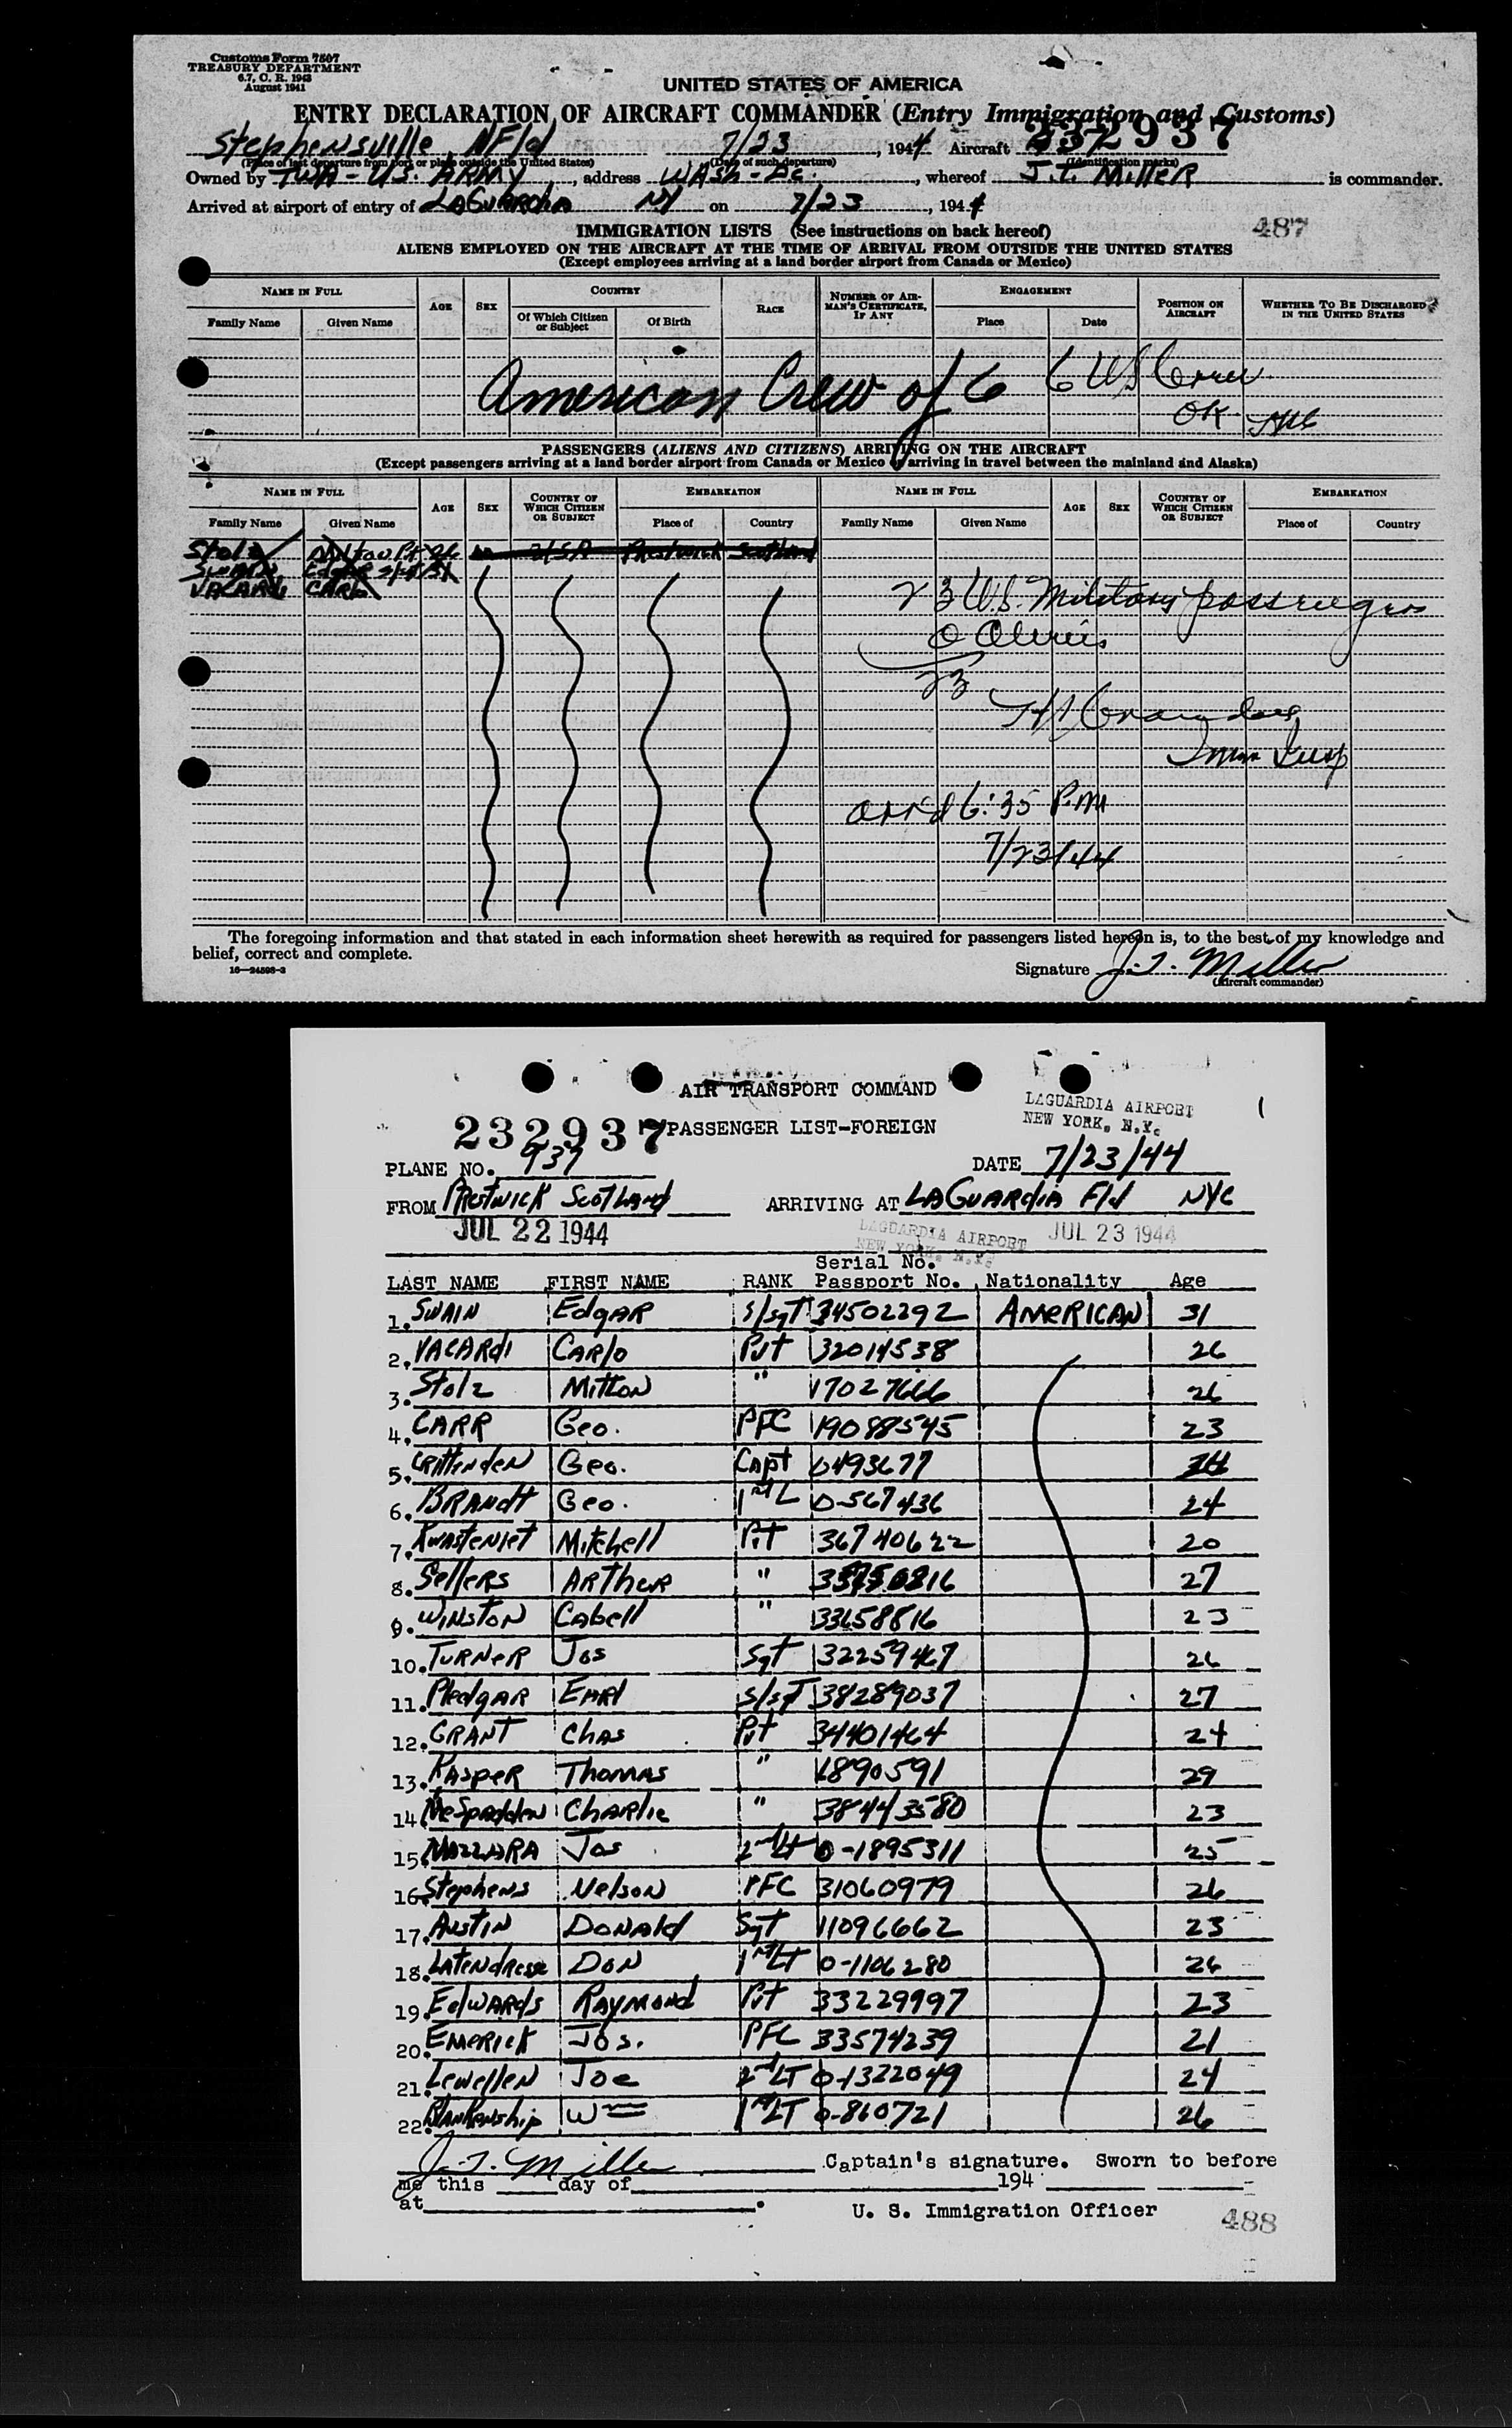 Customs Form 7507
TREASURY DEPARTMENT
6.7, C. R. 1943
August 1941
UNITED STATES OF AMERICA
ENTRY DECLARATION OF AIRCRAFT COMMANDER (Entry Immigration and Customs)
Stephensville NFld 7/23, 1944 Aircraft 232937
(Place of last departure from port or place outside the United States) (Date of such departure) (Identification marks)
Owned by TWA - US. ARMY, address WASH - DC., whereof J.T. Miller is commander.
Arrived at airport of entry of LAGUARDIA NY on 7/23, 1944
487
IMMIGRATION LISTS (See instructions on back hereof)
ALIENS EMPLOYED ON THE AIRCRAFT AT THE TIME OF ARRIVAL FROM OUTSIDE THE UNITED STATES
(Except employees arriving at a land border airport from Canada or Mexico)
NAME IN FULL AGE SEX COUNTRY RACE NUMBER OF AIRMAN'S CERTIFICATE, IF ANY ENGAGEMENT POSITION ON AIRCRAFT WHETHER TO BE DISCHARGED IN THE UNITED STATES
Family Name Given Name Of Which Citizen or Subject Of Birth Place Date
American Crew of 6 6 US Crew
OK
PASSENGERS (ALIENS AND CITIZENS) ARRIVING ON THE AIRCRAFT
(Except passengers arriving at a land border airport from Canada or Mexico or arriving in travel between the mainland and Alaska)
NAME IN FULL AGE SEX COUNTRY OF WHICH CITIZEN OR SUBJECT EMBARKATION NAME IN FULL AGE SEX COUNTRY OF WHICH CITIZEN OR SUBJECT EMBARKATION
Family Name Given Name Place of Country Family Name Given Name Place of Country
Stolz Milton Pvt 26 M USA Prestwick Scotland
Swain Edgar S/Sgt 31
VACARdi CARlo
23 U.S. Military passengers
0 Aliens
23
Imm Insp
arrd 6:35 P.M
7/23/44
The foregoing information and that stated in each information sheet herewith as required for passengers listed hereon is, to the best of my knowledge and
belief, correct and complete.
16—24598-3
Signature J.T. Miller
(Aircraft commander)
AIR TRANSPORT COMMAND
LAGUARDIA AIRPORT
NEW YORK, N.Y.
232937
PASSENGER LIST-FOREIGN
PLANE NO. 937 DATE 7/23/44
FROM Prestwick Scotland ARRIVING AT LAGUARdiA Fld NYC
JUL 22 1944 LAGUARDIA AIRPORT NEW YORK, N.Y. JUL 23 1944
Serial No.
LAST NAME FIRST NAME RANK Passport No. Nationality Age
1. SWAIN EdgAR S/SgT 34502292 AMERICAN 31
2. VACARdi CARlo Pvt 32014538 26
3. Stolz Milton " 17027666 26
4. CARR Geo. PFC 19088545 23
5. CRittenden Geo. Capt 0493677
6. BRANdt Geo. 1st L 0-567436 24
7. Mitchell Pvt 36740622 20
8. Sellers ARTHUR " 27
9. WINSTON Cabell " 33658816 23
10. TURNER Jos Sgt 32259467 26
11. PledgAR EARl S/SgT 38289037 27
12. GRANT Chas Pvt 34401464 24
13. KASPER Thomas " 6890591 29
14. McSpadden CHARlie " 38443580 23
15. MAZZARA Jos 2nd Lt 0-1895311 25
16. Stephens Nelson PFC 31060979 26
17. AUSTIN DONAld Sgt 11096662 23
18. LATENdResse DON 1st LT 0-1106280 26
19. EdWARds RAYMONd Pvt 33229997 23
20. EMERICK Jos. PFC 33574239 21
21. LewelleN Joe 2nd LT 0-1322049 24
22. BlANKENship Wm 1st LT 0-860721 26
J.T. Miller Captain's signature. Sworn to before
me this day of 194
at .
U. S. Immigration Officer
488